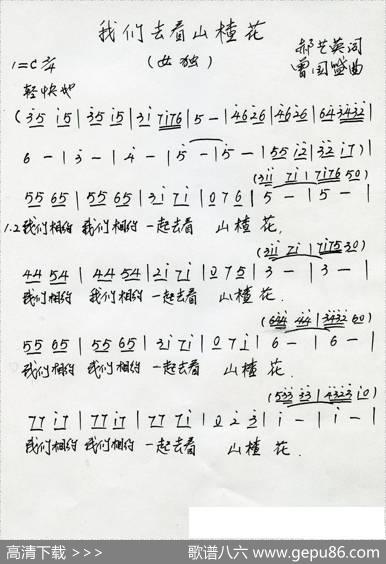 我们去看山楂花
(女独)
郝艺英词
曾国盛曲
1=C 2/4
轻快地
(35 i5 | 35 i5 | 3i 7i76 | 5 - | 4626 | 4626 | 64 3432 |
6 - | 3 - | 4 - | 5 - | 5 - | 55 i2 | 32 i7) |
(3ii 7i | 7i76 50)
55 65 | 55 65 | 3i 7i | 0 7 6 | 5 - | 5 - |
1.2.我们相约 我们相约 一起去看 山楂花,
(3ii 7i | 7i75 30)
44 54 | 44 54 | 2i 7i | 0 7 5 | 3 - | 3 - |
我们相约 我们相约 一起去看 山楂花.
(644 44 | 3432 60)
55 65 | 55 65 | 3i 7i | 0 7 i | 6 - | 6 - |
我们相约 我们相约 一起去看 山楂花.
(533 33 | 4323 i0)
77 i7 | 77 i7 | 77 7i | 0 2 3 | i - | i - |
我们相约 我们相约 一起去看 山楂花.
高清下载 >>> 歌谱八六 www.gepu86.com